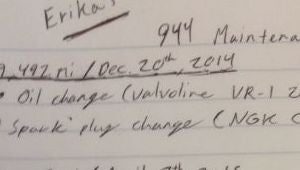 Erika
944 Maintena
9,492 mi / Dec. 20th, 2014
• Oil change (Valvoline VR-1 2
• Spark plug change (NGK